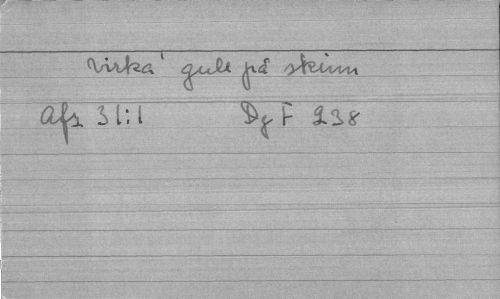 virka' gull på skinn
Afz 3 l:1 Dyf 238